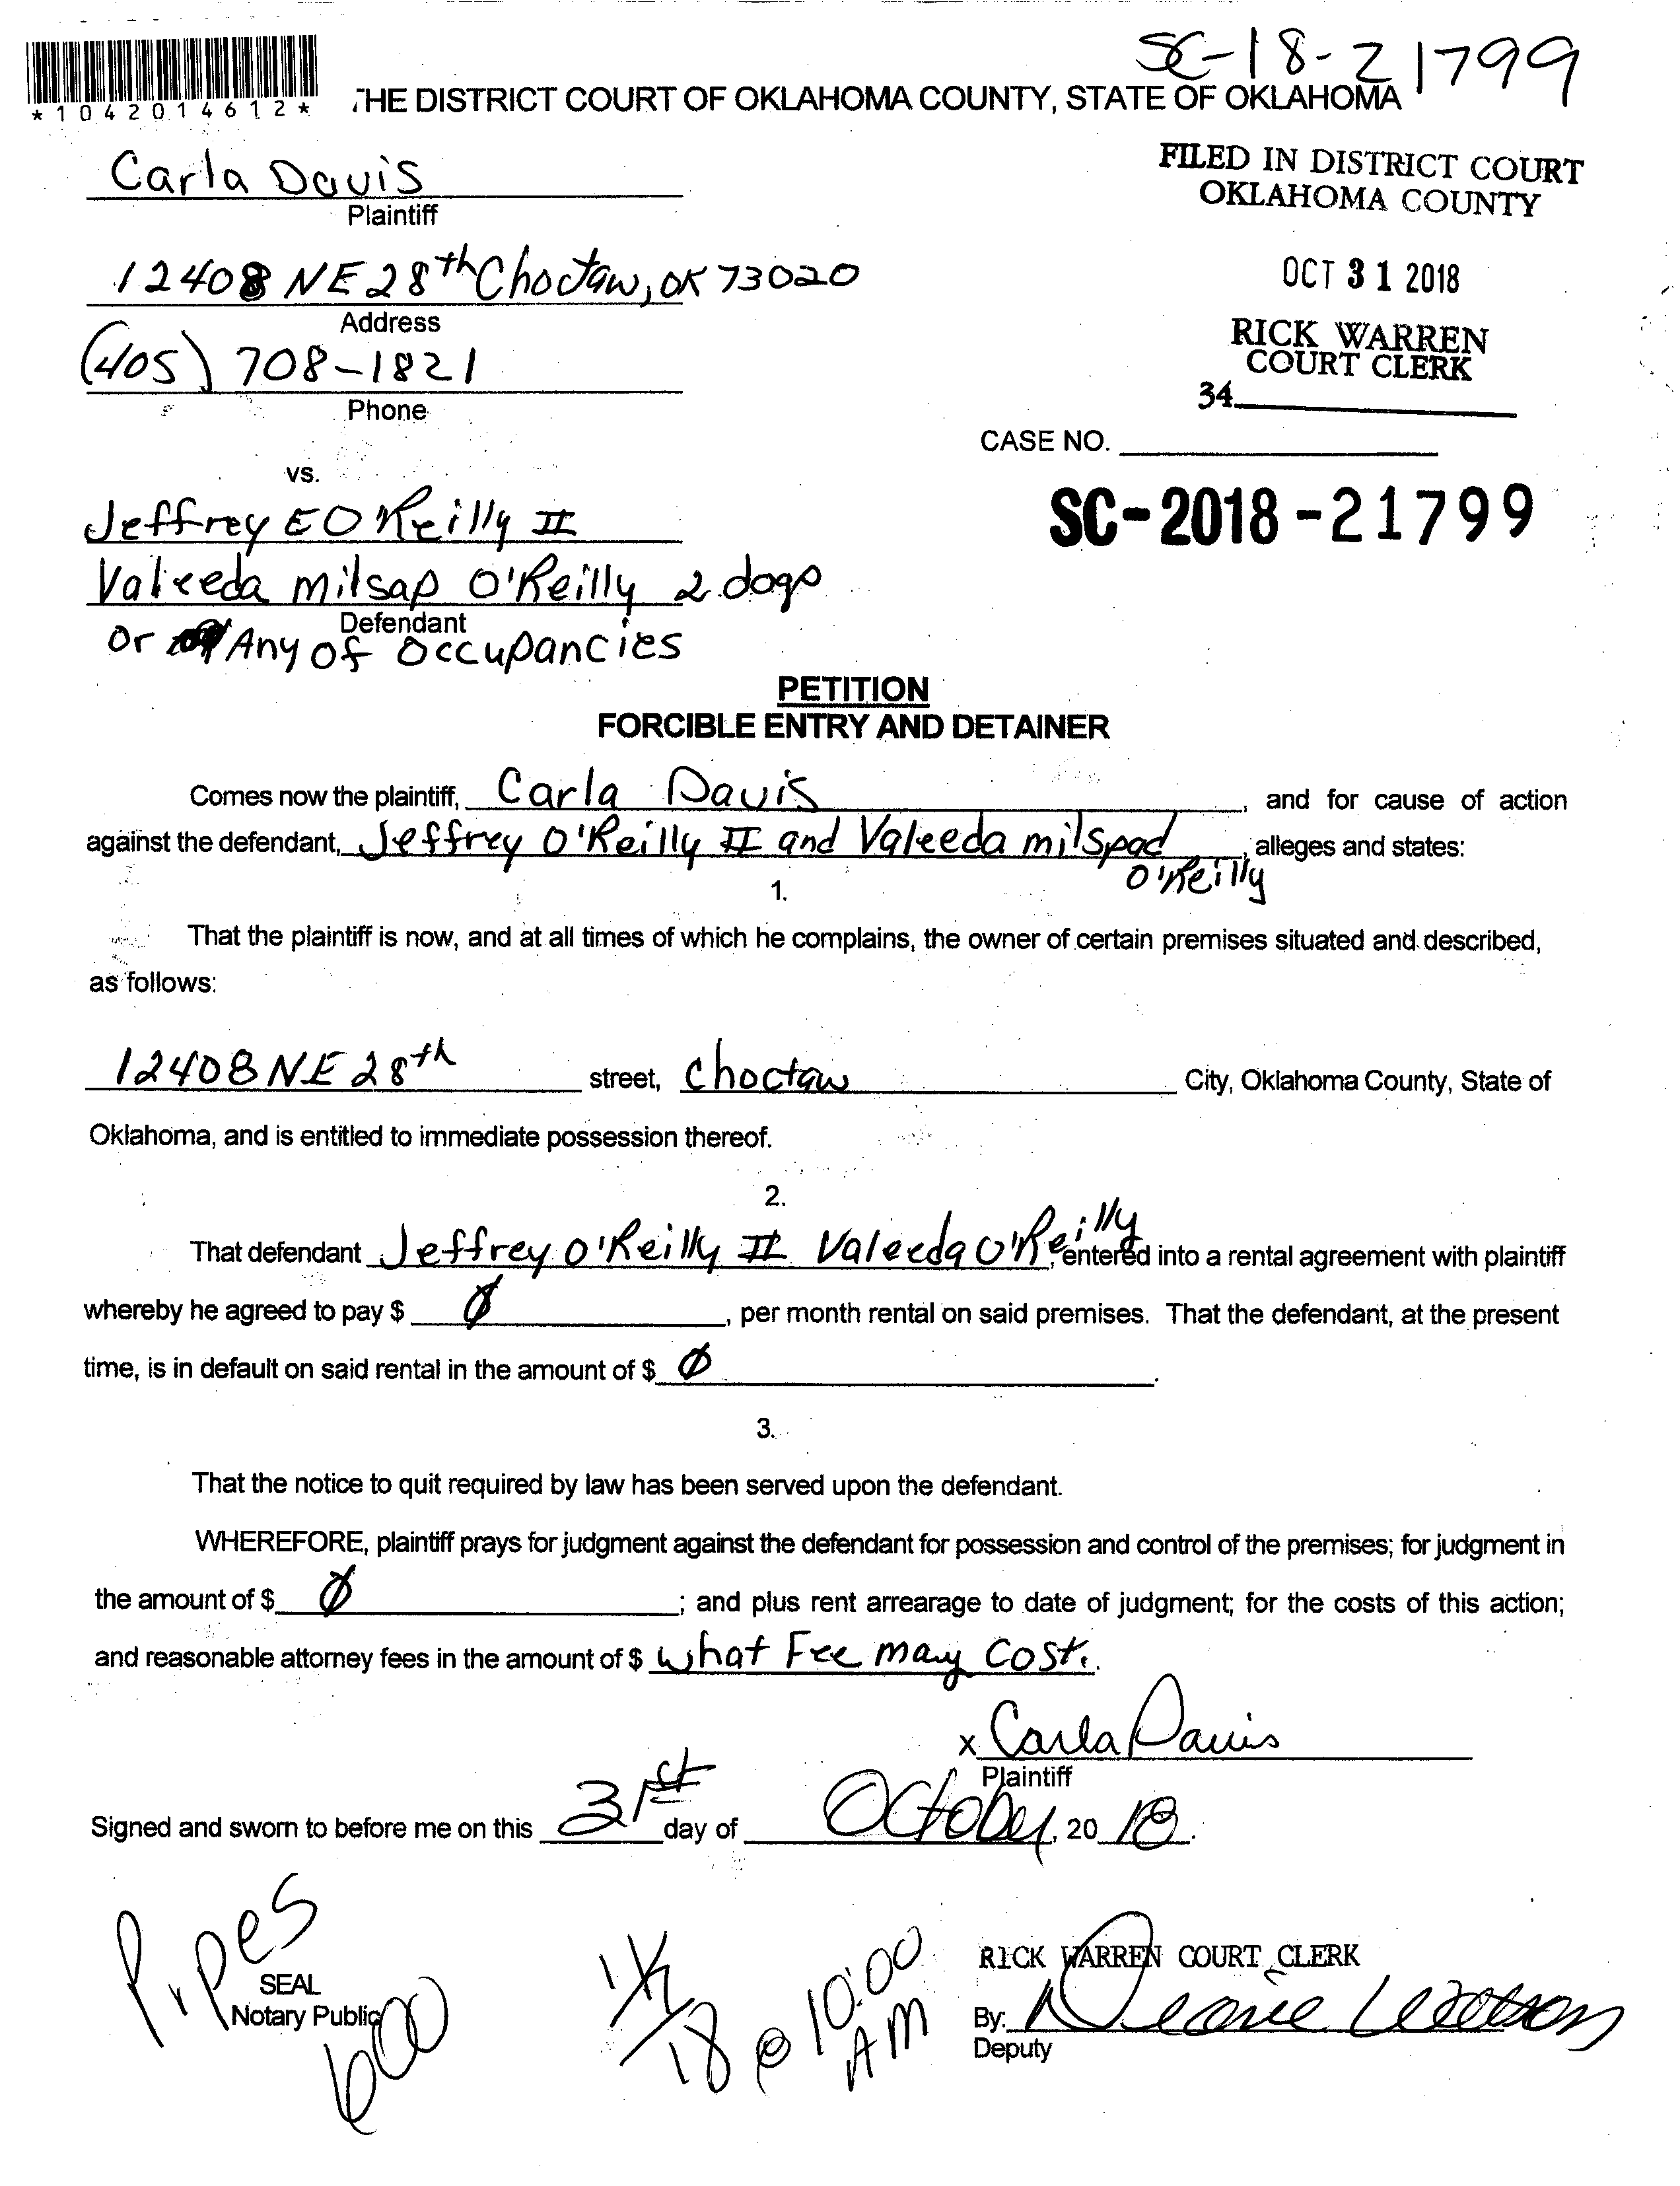 SC-18-21799
*1042014612*
THE DISTRICT COURT OF OKLAHOMA COUNTY, STATE OF OKLAHOMA
Carla Davis
Plaintiff
FILED IN DISTRICT COURT
OKLAHOMA COUNTY
12408 NE 28th Choctaw, OK 73020
Address
OCT 31 2018
(405) 708-1821
Phone
RICK WARREN
COURT CLERK
34
CASE NO.
vs.
SC-2018-21799
Jeffrey E O Reilly II
Valeeda milsap O'Reilly 2 dogs
Defendant
or Any of occupancies
PETITION
FORCIBLE ENTRY AND DETAINER
Comes now the plaintiff, Carla Davis, and for cause of action
against the defendant, Jeffrey O'Reilly II and Valeeda milspad O'Reilly, alleges and states:
1.
That the plaintiff is now, and at all times of which he complains, the owner of certain premises situated and described,
as follows:
12408 NE 28th street, Choctaw City, Oklahoma County, State of
Oklahoma, and is entitled to immediate possession thereof.
2.
That defendant Jeffrey O'Reilly II Valeeda O'Reilly, entered into a rental agreement with plaintiff
whereby he agreed to pay $ Ø, per month rental on said premises. That the defendant, at the present
time, is in default on said rental in the amount of $ Ø.
3.
That the notice to quit required by law has been served upon the defendant.
WHEREFORE, plaintiff prays for judgment against the defendant for possession and control of the premises; for judgment in
the amount of $ Ø; and plus rent arrearage to date of judgment; for the costs of this action;
and reasonable attorney fees in the amount of $ what Fee may cost.
x Carla Davis
Plaintiff
Signed and sworn to before me on this 31st day of October, 2018.
Pipes
SEAL
Notary Public
600
@ 10:00
AM
RICK WARREN COURT CLERK
By:
Deputy